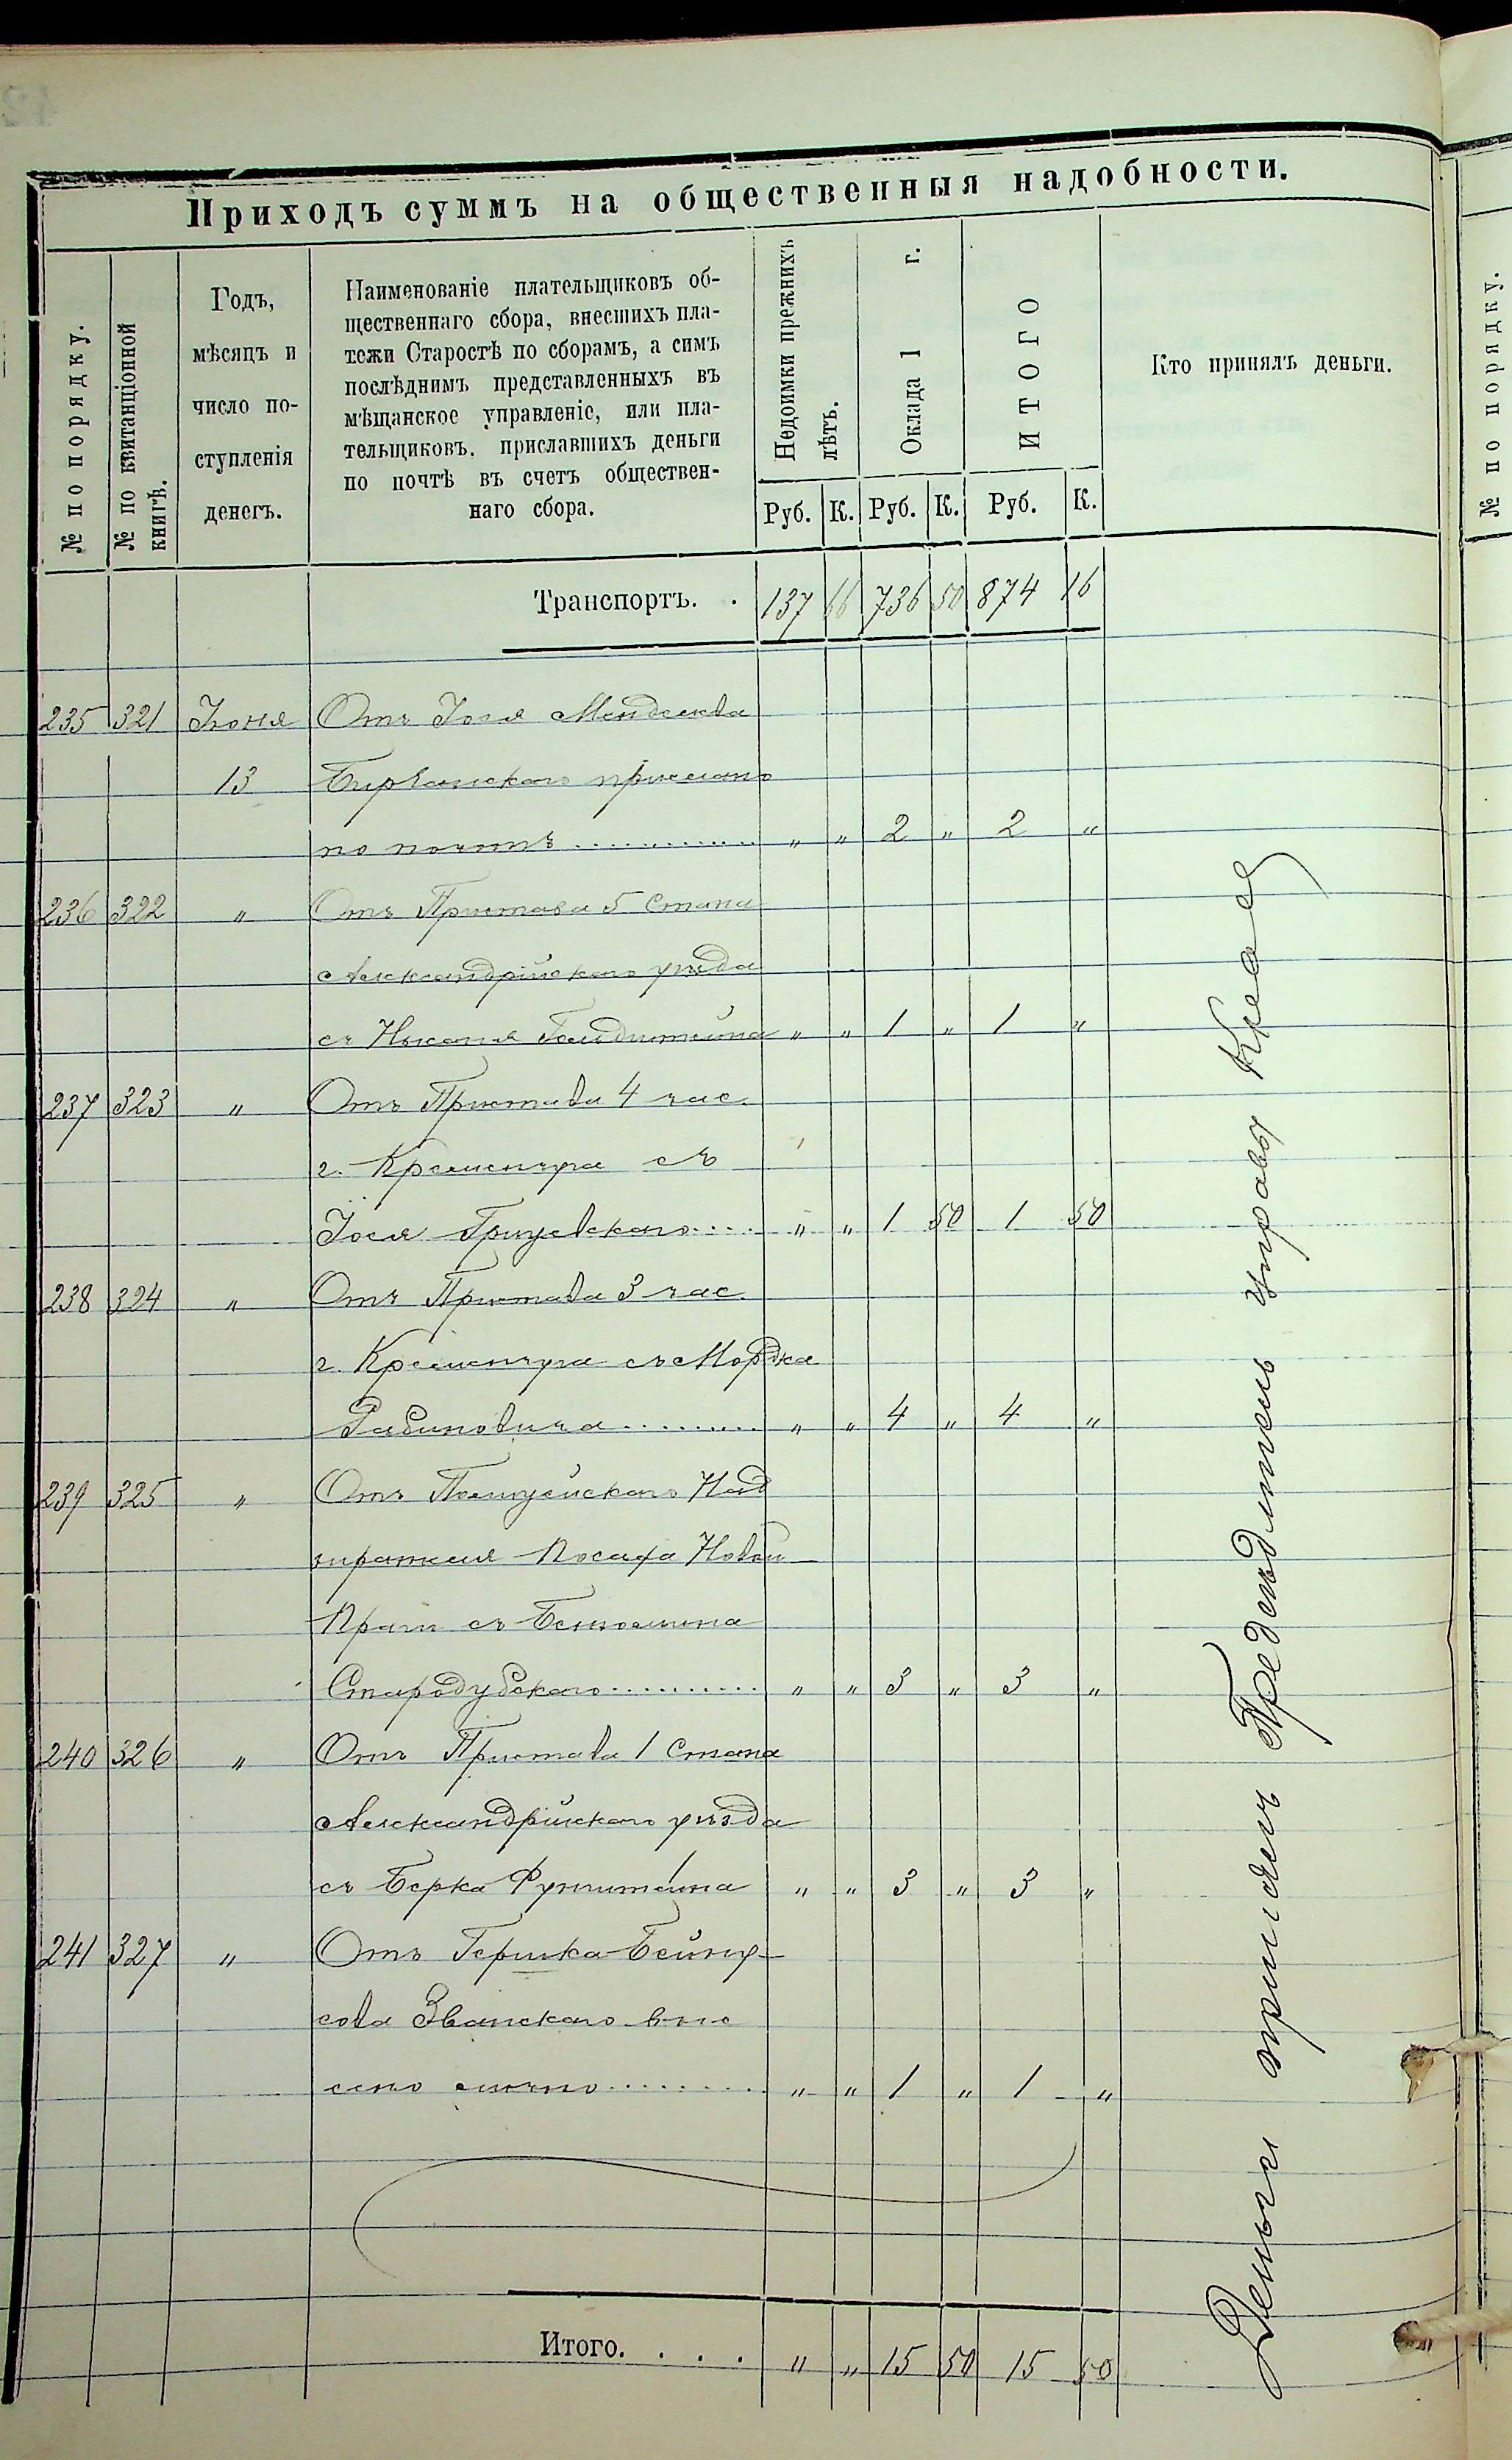 Приходъ суммъ на общественныя надобности.
№ по порядку.
№ по квитанціонной
книгѣ.
Годъ,
мѣсяцъ и
число по-
ступленія
денегъ.
Наименованіе плательщиковъ об-
щественнаго сбора, внесшихъ пла-
тежи Старостѣ по сборамъ, а симъ
послѣднимъ представленныхъ въ
мѣщанское управленіе, или пла-
тельщиковъ, приславшихъ деньги
по почтѣ въ счетъ обществен-
наго сбора.
Недоимки прежнихъ
лѣтъ.
Оклада 1 г.
ИТОГО
Кто принялъ деньги.
Руб. К. Руб. К. Руб. К.
Транспортъ. . 137 66 736 50 874 16
235 321 Іюня Отъ Іося Менделева
13 прислано
по почтѣ " " 2 " 2 "
236 322 " Отъ Пристава 5 Стана
Александрійскаго уѣзда
съ Гольдштейна " " 1 " 1 "
237 323 " Отъ Пристава 4 час.
г. Кременчуга съ
Іося " " 1 50 1 50
238 324 " Отъ Пристава 3 час.
г. Кременчуга съ Мордка
Рабиновича " " 4 " 4 "
239 325 " Отъ Полицейскаго Над
зирателя Посада Новой
Праги съ Беньомина
Стародубскаго " " 3 " 3 "
240 326 " Отъ Пристава 1 Стана
Александрійскаго уѣзда
съ Берка " " 3 " 3 "
241 327 " Отъ Гершка Бейну-
сова Званскаго вне
сено лично " " 1 " 1 "
Итого. . . . " " 15 50 15 50
Деньги принялъ Предсѣдатель управы
№ по порядку.